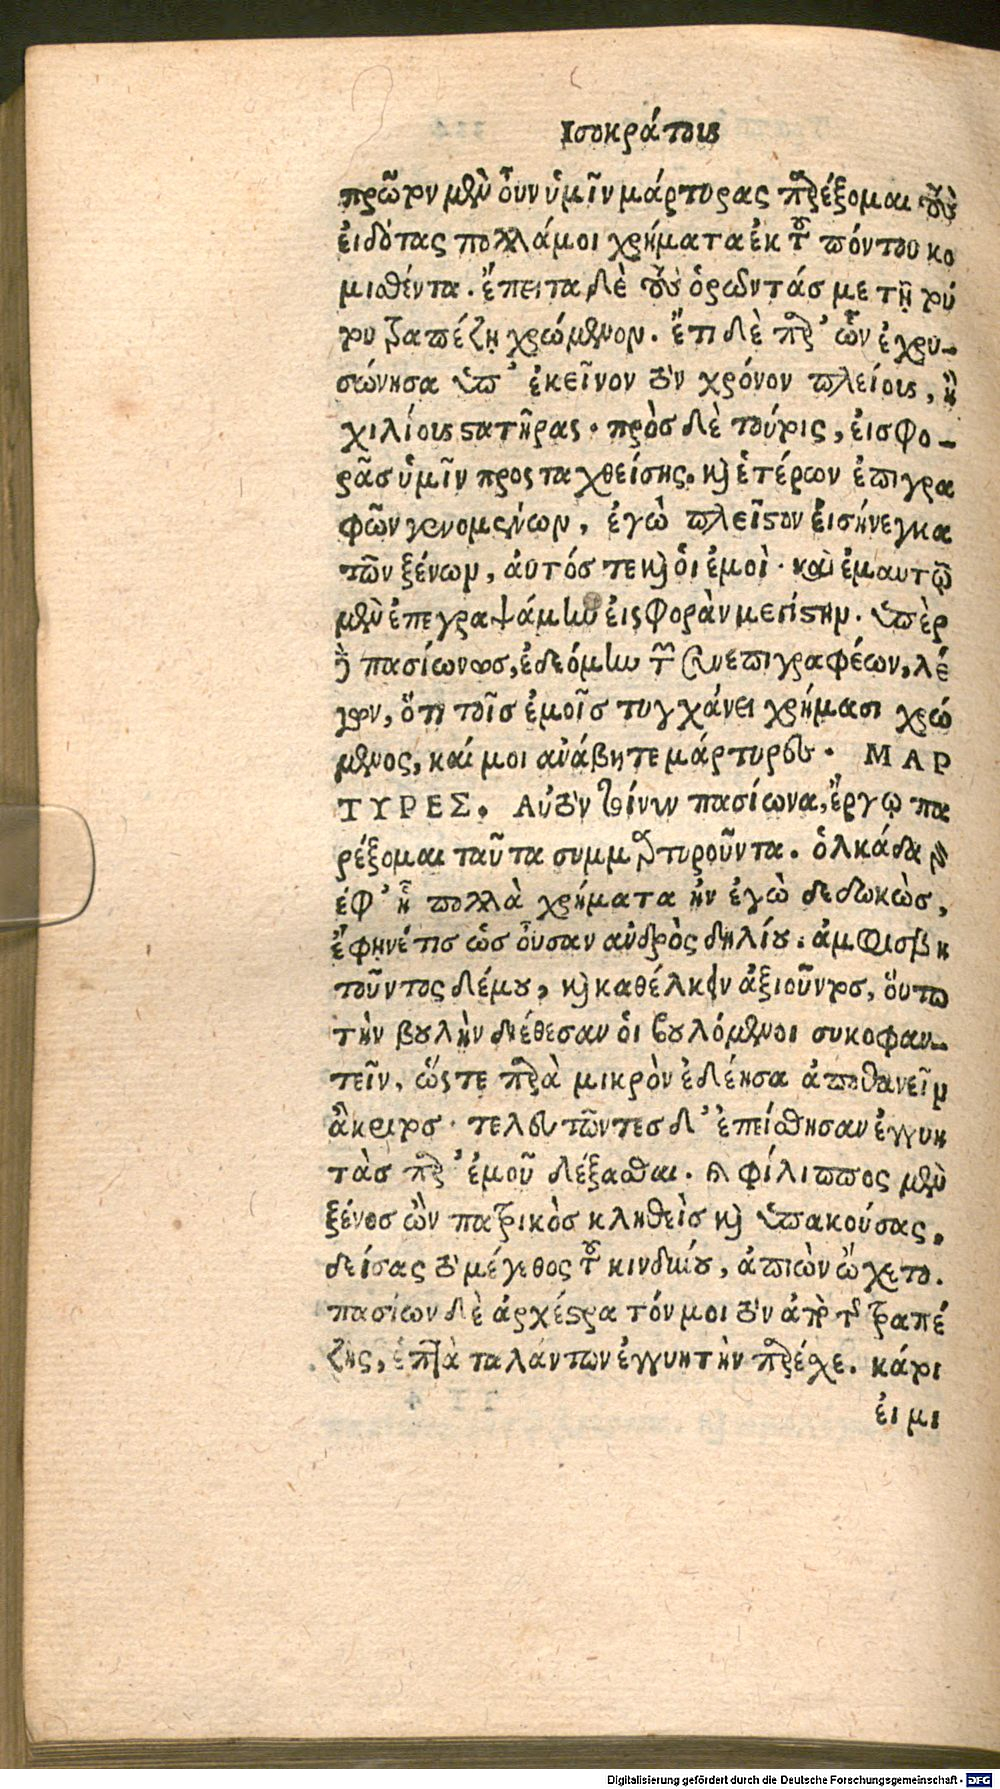 Ισοκράτους
πρῶτον μὲν οὖν ὑμῖν μάρτυρας παρέξομαι τοὺς
εἰδότας πολλά μοι χρήματα ἐκ τοῦ πόντου κο
μισθέντα. ἔπειτα δὲ τοὺς ὁρῶντάς με τῇ τού
του τραπέζῃ χρώμενον. ἔτι δὲ παρ’ ὧν ἐχρυ-
σώνησα ὑπ’ ἐκεῖνον τὸν χρόνον πλείους, ἢ
χιλίους στατῆρας. πρὸς δὲ τούτοις, εἰσφο-
ρᾶς ὑμῖν προσταχθείσης. καὶ ἑτέρων ἐπιγρα
φῶν γενομένων, ἐγὼ πλεῖστον εἰσήνεγκα
τῶν ξένων, αὐτός τε καὶ οἱ ἐμοὶ. καὶ ἐμαυτῷ
μὲν ἐπεγραψάμην εἰσφορὰν μεγίστην. ὑπὲρ
δὲ πασίωνος, ἐδεόμην τῶν συνεπιγραφέων, λέ
γων, ὅτι τοῖς ἐμοῖς τυγχάνει χρήμασι χρώ
μενος, καί μοι ἀνάβητε μάρτυρες. ΜΑΡ
ΤΥΡΕΣ. Αὐτὸν τοίνυν πασίωνα, ἔργῳ πα
ρέξομαι ταῦτα συμμαρτυροῦντα. ὁλκάδα γὰρ
ἐφ’ ᾗ πολλὰ χρήματα ἦν ἐγὼ δεδωκὼς,
ἔφηνέ τις ὡς οὖσαν ἀνδρὸς δηλίου. ἀμφισβη
τοῦντος δέ μου, καὶ καθέλκειν ἀξιοῦντος, οὕτω
τὴν βουλὴν διέθεσαν οἱ βουλόμενοι συκοφαν-
τεῖν, ὥστε παρὰ μικρὸν ἐδέησα ἀποθανεῖν
ἄκριτος. τελευτῶντες δ’ ἐπείσθησαν ἐγγυη
τὰς παρ’ ἐμοῦ δέξασθαι. καὶ φίλιππος μὲν
ξένος ὢν πατρικὸς κληθεὶς καὶ ὑπακούσας,
δείσας τὸ μέγεθος τοῦ κινδύνου, ἀπιὼν ᾤχετο.
πασίων δὲ ἀρχέστρατόν μοι τὸν ἀπὸ τῆς τραπέ
ζης, ἑπτὰ ταλάντων ἐγγυητὴν παρέσχε. κάτοι
εἰ μι
Digitalisierung gefördert durch die Deutsche Forschungsgemeinschaft - DFG